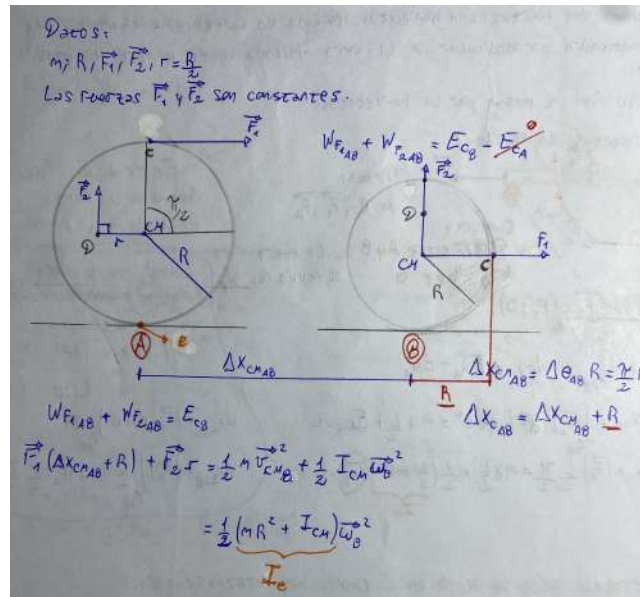 Datos:
m, R, F⃗₁, F⃗₂, r = R/2
Las fuerzas F⃗₁ y F⃗₂ son constantes.
W_F₁AB + W_F₂AB = E_CB - E_CA 0
F⃗₁
C
π/2
F⃗₂
D r CM
R
e
A
F⃗₂
D
CM C F₁
R
B
Δx_CM_AB
R
Δx_CM_AB = Δθ_AB R = π/2
Δx_C_AB = Δx_CM_AB + R
W_F₁AB + W_F₂AB = E_CB
F⃗₁ (Δx_CM_AB + R) + F⃗₂ r = 1/2 m v⃗_CM_B² + 1/2 I_CM ω⃗_B²
= 1/2 (mR² + I_CM) ω⃗_B²
I_e